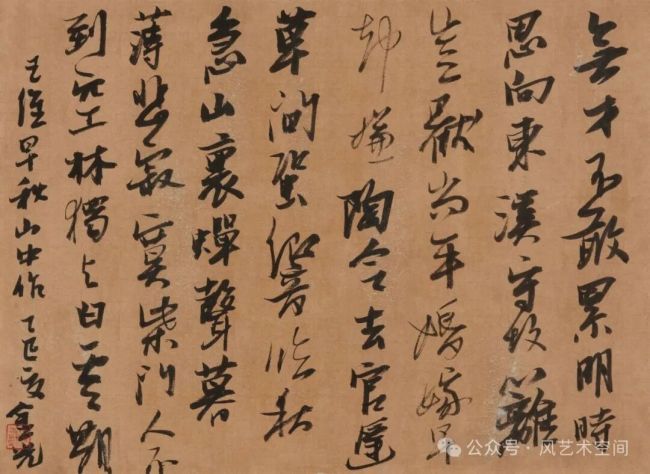 無才不敢累明時
思向東溪守故籬
豈厭尚平婚嫁早
卻嫌陶令去官遲
草間蛩響臨秋
急山裏蟬聲暮
薄悲寂寞柴門人不
到空林獨与白雲期
王維早秋山中作 乙巳夏
公众号·风艺术空间